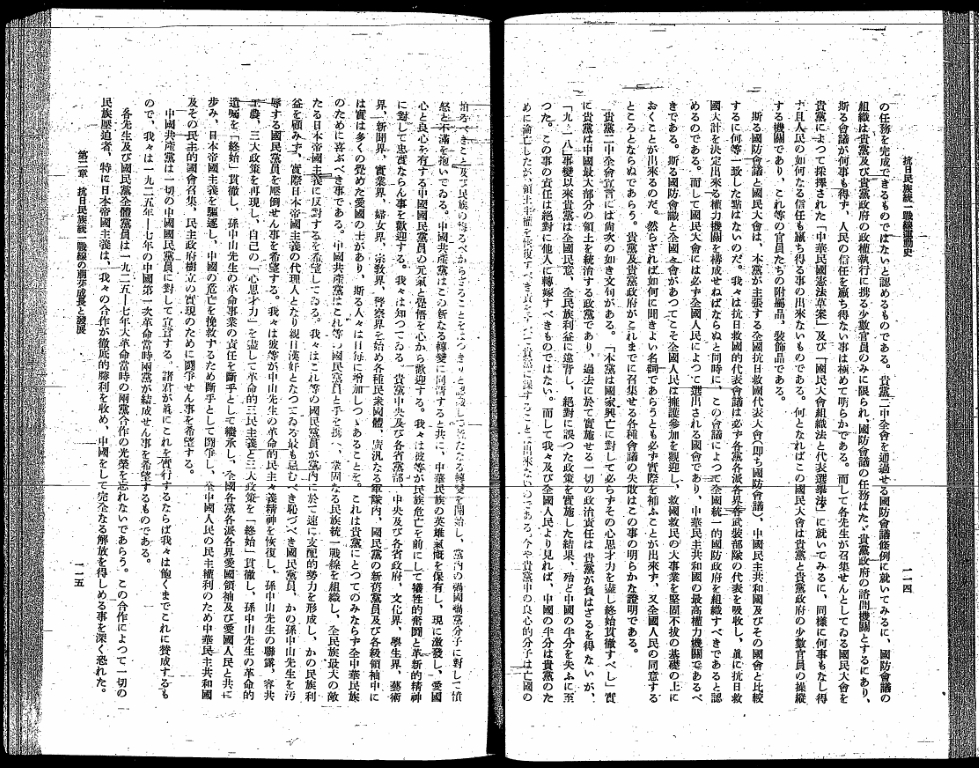 抗日民族統一戰線運動史
一一四
の任務を完成できるものではないと認めるものである。貴黨二中全會を通過せる國防會議條例に就いてみるに、國防會議の
組織は貴黨及び貴黨政府の政權執行に携る少數官員のみに限られ、國防會議の任務はたゞ貴黨政府の諮問機關とするにあり、
斯る會議が何事も得ず、人民の信任を贏ち得ない事は極めて明らかである。而して各先生が召集せんとしてゐる國民大會を
貴黨によつて採擇された「中華民國憲法草案」及び「國民大會組織法と代表選擧法」に就いてみるに、同樣に何事もなし得
ず且人民の如何なる信任も贏ち得る事の出來ないものである。何となればこの國民大會は貴黨と貴黨政府の少數官員の操縱
する機關であり、これ等の官員たちの附屬品、裝飾品である。
斯る國防會議と國民大會は、本黨が主張する全國抗日救國代表大會(即ち國防會議)、中國民主共和國及びその國會と比較
するに何等一致した點はないのだ。我々は抗日救國的代表會議は必ず各黨各派各界各武裝部隊の代表を吸收し、眞に抗日救
國大計を決定出來る權力機關を構成せねばならぬと同時に、この會議によつて全國統一的國防政府を組織すべきであると認
めるのである。而して國民大會には必ず全國人民によつて選出される國會であり、中華民主共和國の最高權力機關であるべ
きである。斯る國防會議と全國々會があつてこそ全國人民は擁護參加を觀迎し、救國救民の大事業を堅固不拔の基礎の上に
おくことが出來るのだ。然らざれば如何に聞きよい名詞であらうとも必ず實際を補ふことが出來ず、又全國人民の同意する
ところとならぬであらう。貴黨及貴黨政府がこれまでに召集せる各種會議の失敗はこの事の明らかな證明である。
貴黨二中全會宣言には尚次の如き文句がある。「本黨は國家興亡に對して必らずその心思才力を盡し終始貫徹すべし」實
に貴黨は中國最大部分の領土を統治する政黨であり、過去に於て實施せる一切の政治責任は貴黨が負はざるを得ないが、
「九・一八」事變以來貴黨は全國民意、全民族利益に違背し、絕對に誤つた政策を實施した結果、殆ど中國の半分を失ふに至
つた。この事の責任は絕對に他人に轉嫁すべきものではない。而して我々及び全國人民より見れば、中國の半分は貴黨のた
めに淪亡したが、領土主權を恢復すべき責を貴黨に課することは出來ないのである。今や貴黨中の良心的分子は亡國の
心と良心を有する中國國民黨員の元氣と覺悟を心から歡迎する。我々は彼等が民族危亡を前にして犧牲的奮鬪と革新的精神
に對して忠實ならん事を歡迎する。我々は知つてゐる、貴黨中央及び各省黨部、中央及び各省政府、文化界、學生界、藝術
界、新聞界、實業界、婦女界、宗敎界、警察界を始め各種民衆團體、廣汎なる軍隊内、國民黨の新舊黨員及び各級領袖中に
は實は多くの覺めた愛國の士があり、斯る人々は日每に增加しつゝあることを。これは貴黨にとつてのみならず全中華民族
のために喜ぶべき事である。中國共產黨はこれ等の國民黨員と手を携へ、鞏固なる民族統一戰線を組織し、全民族最大の敵
たる日本帝國主義に反對するを希望してゐる。我々はこれ等の國民黨員が黨内に於て速に支配的勢力を形成し、かの民族利
益を顧みず、實際日本帝國主義の代理人となり親日漢奸となつてゐる最も忌むべき恥づべき國民黨員、かの孫中山先生を汚
辱する國民黨員を壓倒せん事を希望する。我々は彼等が孫中山先生の革命的民主々義精神を恢復し、孫中山先生の聯露、容共
工農、三大政策を再現し、自己の「心思才力」を盡して革命的三民主義と三大政策を「終始」貫徹し、孫中山先生の革命的
遺囑を「終始」貫徹し、孫中山先生の革命事業の責任を斷乎として繼承し、全國各黨派各界愛國領袖及び愛國人民と共に
步み、日本帝國主義を驅逐し、中國の危亡を挽救するため斷乎として鬪爭し、全中國人民の民主權利のため中華民主共和國
及その民主的國會召集、民主政府樹立の實現のために鬪爭せん事を希望する。
中國共產黨は一切の中國國民黨員に對して宣言する。諸君が眞にこれを實行するならば我々は飽くまでこれに贊成するも
ので、我々は一九二五年―七年の中國第一次革命當時兩黨が結成せん事を希望するものである。
各先生及び國民黨全體黨員は一九二五―七年大革命當時の兩黨合作の光榮を忘れないであらう。この合作によつて一切の
民族壓迫者、特に日本帝國主義は、我々の合作が徹底的勝利を收め、中國をして完全なる解放を得しめる事を深く恐れた。
第二章 抗日民族統一戰線の萠芽成長と發展
一一五